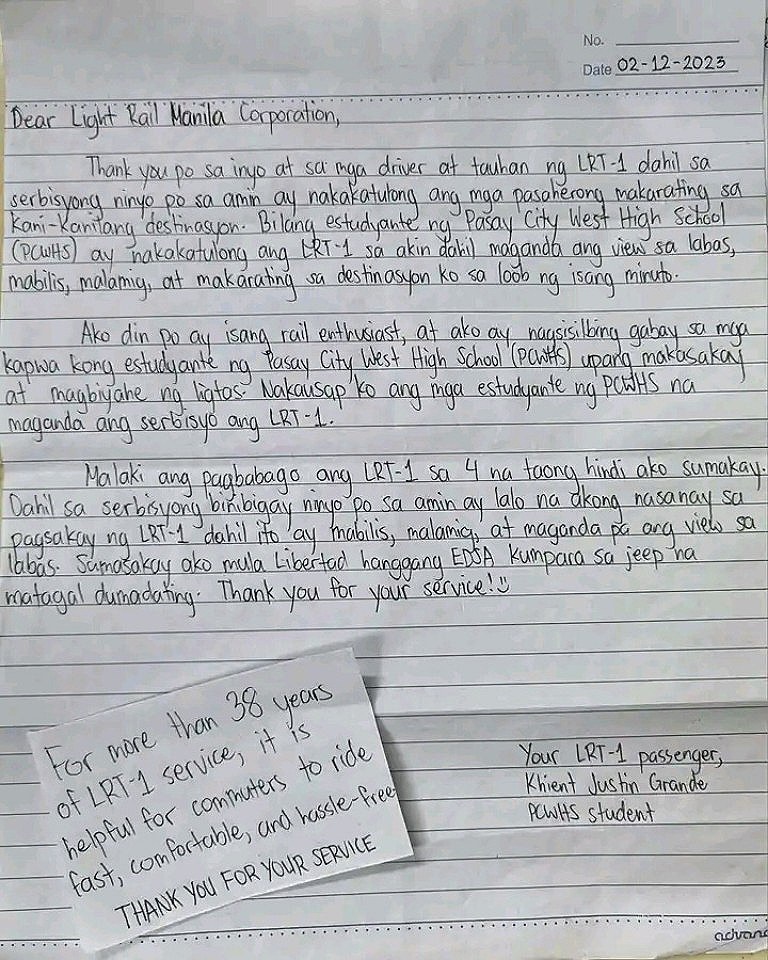 No.
Date 02-12-2023
Dear Light Rail Manila Corporation,
Thank you po sa inyo at sa mga driver at tauhan ng LRT-1 dahil sa
serbisyong ninyo po sa amin ay nakakatulong ang mga pasaherong makarating sa
kani-kanilang destinasyon. Bilang estudyante ng Pasay City West High School
(PCWHS) ay nakakatulong ang LRT-1 sa akin dahil maganda ang view sa labas,
mabilis, malamig, at makarating sa destinasyon ko sa loob ng isang minuto.
Ako din po ay isang rail enthusiast, at ako ay nagsisilbing gabay sa mga
kapwa kong estudyante ng Pasay City West High School (PCWHS) upang makasakay
at magbiyahe ng ligtas. Nakausap ko ang mga estudyante ng PCWHS na
maganda ang serbisyo ang LRT-1.
Malaki ang pagbabago ang LRT-1 sa 4 na taong hindi ako sumakay.
Dahil sa serbisyong binibigay ninyo po sa amin ay lalo na akong nasanay sa
pagsakay ng LRT-1 dahil ito ay mabilis, malamig, at maganda pa ang view sa
labas. Sumasakay ako mula Libertad hanggang EDSA kumpara sa jeep na
matagal dumadating. Thank you for your service!
For more than 38 years
of LRT-1 service, it is
helpful for commuters to ride
fast, comfortable, and hassle-free
THANK YOU FOR YOUR SERVICE
Your LRT-1 passenger,
Khient Justin Grande
PCWHS student
advanc